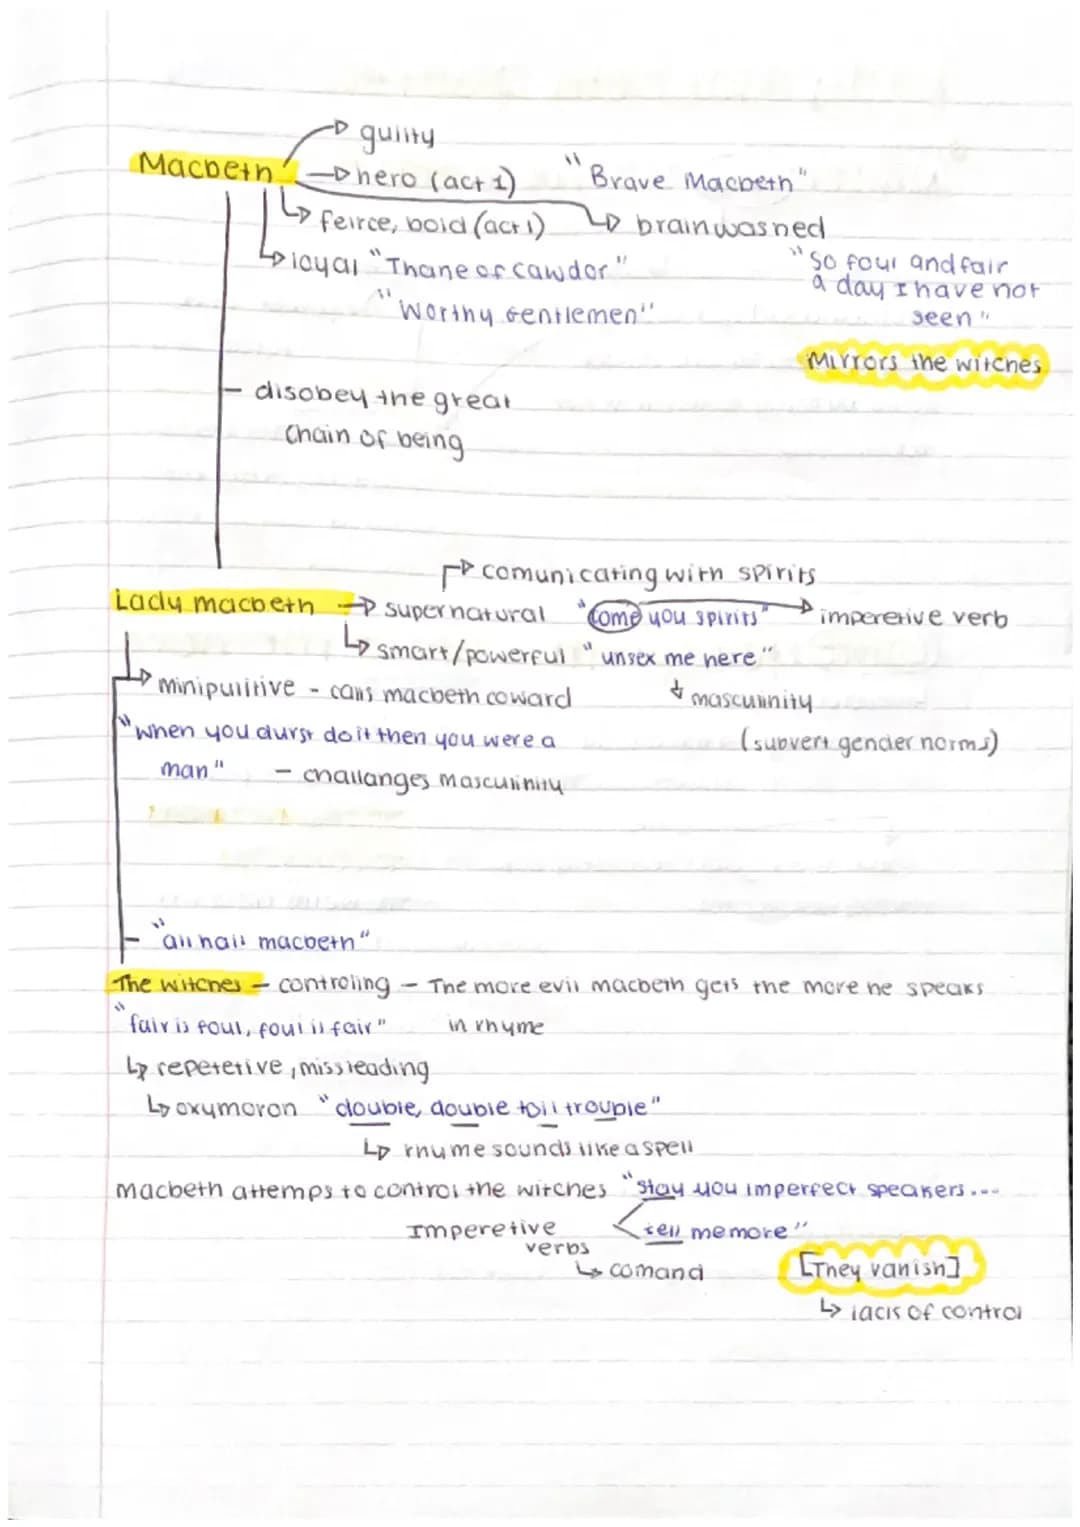 guilty
Macbeth hero (act 1) "Brave Macbeth"
feirce, bold (act 1) brainwashed
loyal "Thane of cawdor" "So foul and fair
a day I have not
"Worthy Gentlemen" seen"
Mirrors the witches
- disobey the great
Chain of being
comunicating with spirits
Lady macbeth supernatural "come you spirits" imperetive verb
smart/powerful "unsex me here"
minipulitive - calls macbeth coward masculinity
"when you durst do it then you were a (subvert gender norms)
man" - challanges masculinity
- "all hail macbeth"
The witches - controling - The more evil macbeth gets the more he speaks
"fair is foul, foul is fair" in rhyme
repetetive, missleading
oxymoron "double, double toil trouble"
rhyme sounds like a spell
macbeth attemps to control the witches "stay you imperfect speakers...
Imperetive tell me more"
verbs
comand [They vanish]
lacks of control